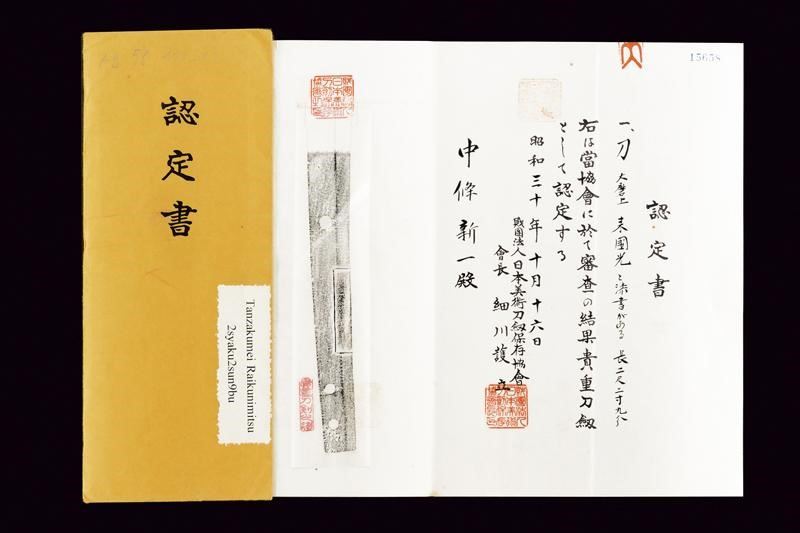 認定書
Tanzakumei Raikunimitsu
2syaku2sun9bu
15658
認定書
一、刀 大磨上 来國光と漆書がある 長二尺二寸九分
右は當協會に於て審査の結果貴重刀剱
として認定する
昭和三十年十月十六日
財団法人日本美術刀剱保存協會
會長 細川護立
中條新一殿